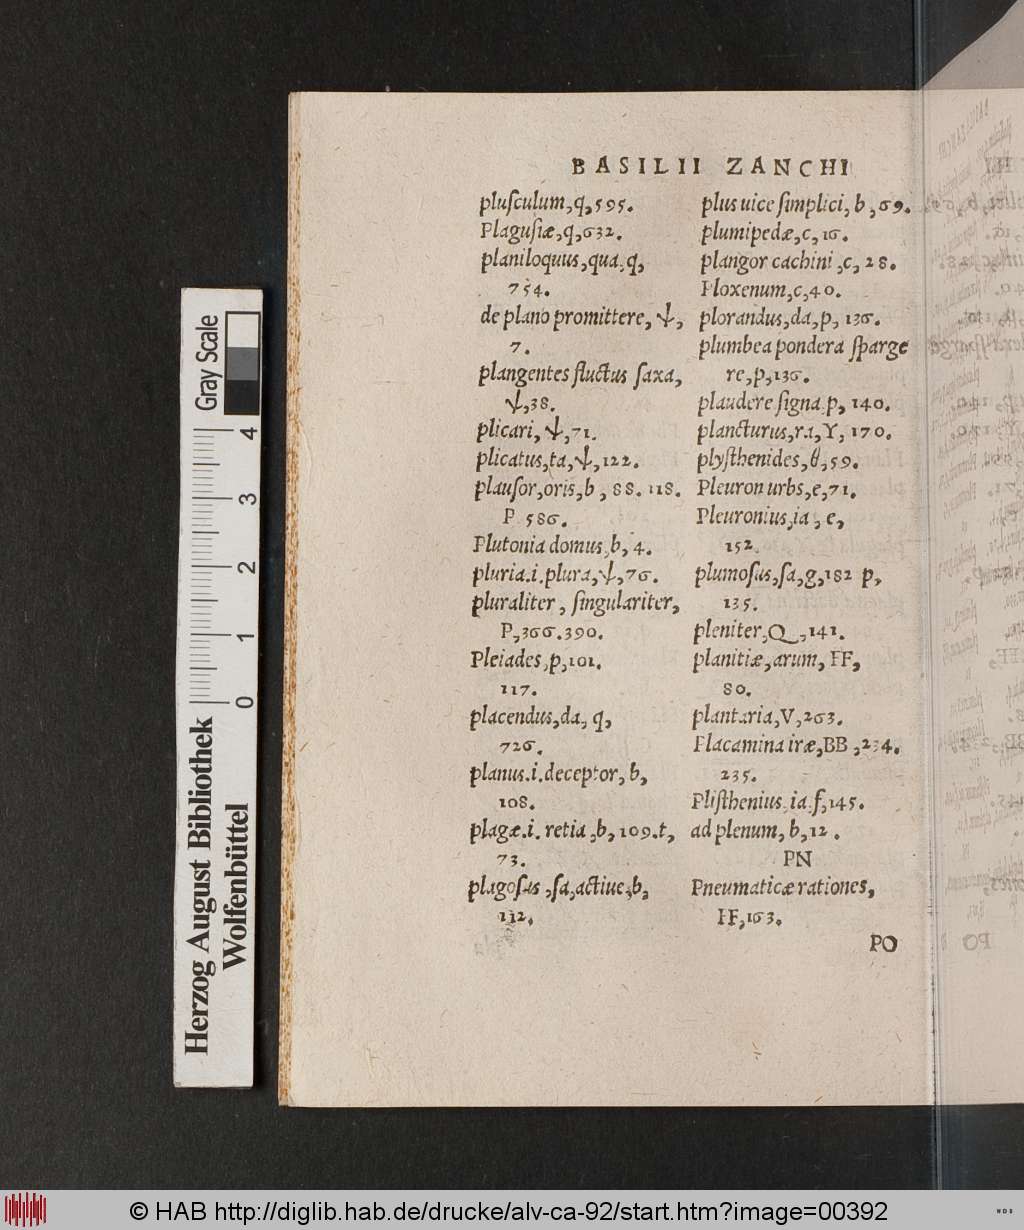 BASILII ZANCHI
pluſculum,q,595.
Plaguſiæ,q,632.
planiloquus,qua,q,
754.
de plano promittere, ψ,
7.
plangentes fluctus ſaxa,
ψ,38.
plicari, ψ,71.
plicatus,ta,ψ,122.
plauſor,oris,b, 88. 118.
P 586.
Plutonia domus,b, 4.
pluria.i.plura,ψ,76.
pluraliter, ſingulariter,
P,366.390.
Pleiades,p,101.
117.
placendus,da, q,
726.
planus.i.deceptor, b,
108.
plagæ.i. retia,b, 109.t,
73.
plagoſus,ſa,actiue,b,
112.
plus uice ſimplici, b, 69.
plumipedæ,c,16.
plangor cachini,c, 28.
Ploxenum,c,40.
plorandus,da,p, 136.
plumbea pondera ſparge
re,p,136.
plaudere ſigna p, 140.
plancturus,ra,Y, 170.
plyſthenides,θ,59.
Pleuron urbs,e,71.
Pleuronius,ia, e,
152.
plumoſus,ſa,g,182 p,
135.
pleniter,Q,141.
planitiæ,arum, FF,
80.
plantaria,V,263.
Placamina iræ,BB,234.
235.
Pliſthenius,ia f,145.
ad plenum, b,12.
PN
Pneumaticæ rationes,
FF,163.
PO
Gray Scale
4
3
2
1
0
Herzog August Bibliothek
Wolfenbüttel
© HAB http://diglib.hab.de/drucke/alv-ca-92/start.htm?image=00392